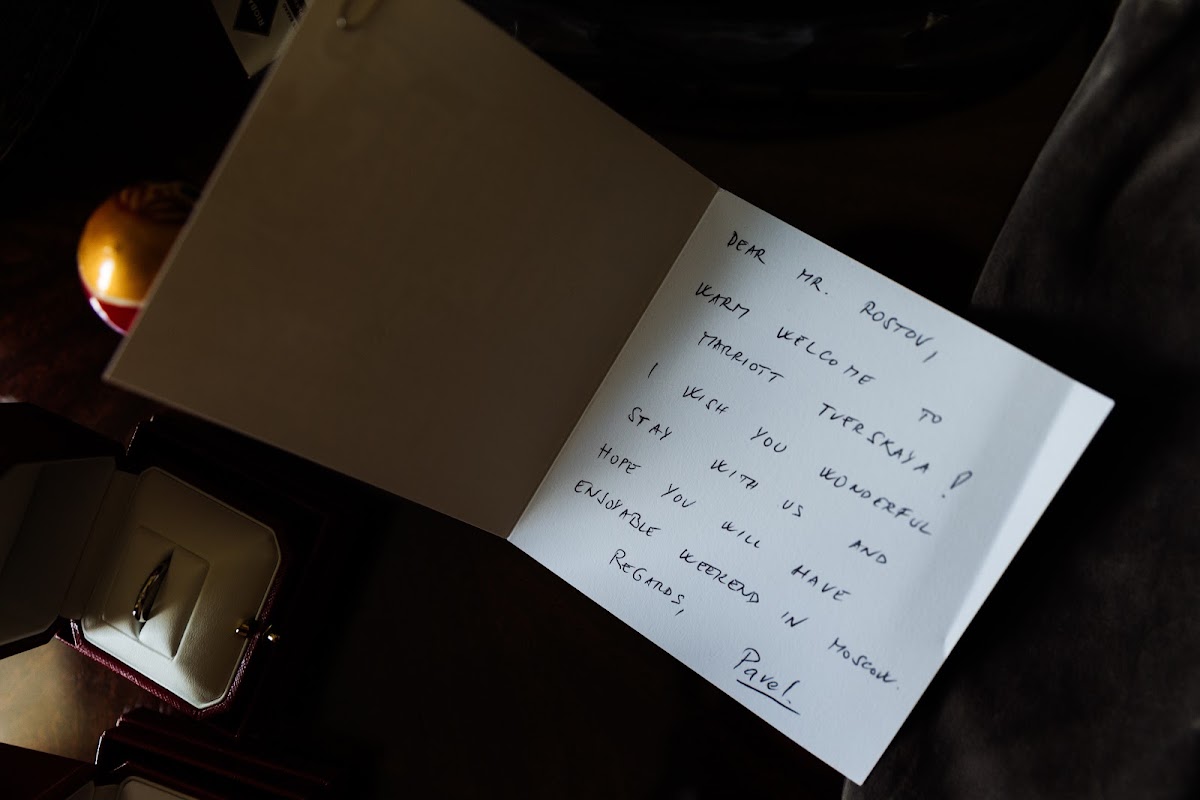 DEAR MR. ROSTOV,
WARM WELCOME TO
MARRIOTT TVERSKAYA!
I WISH YOU WONDERFUL
STAY WITH US AND
HOPE YOU WILL HAVE
ENJOYABLE WEEKEND IN MOSCOW.
REGARDS,
Pavel.